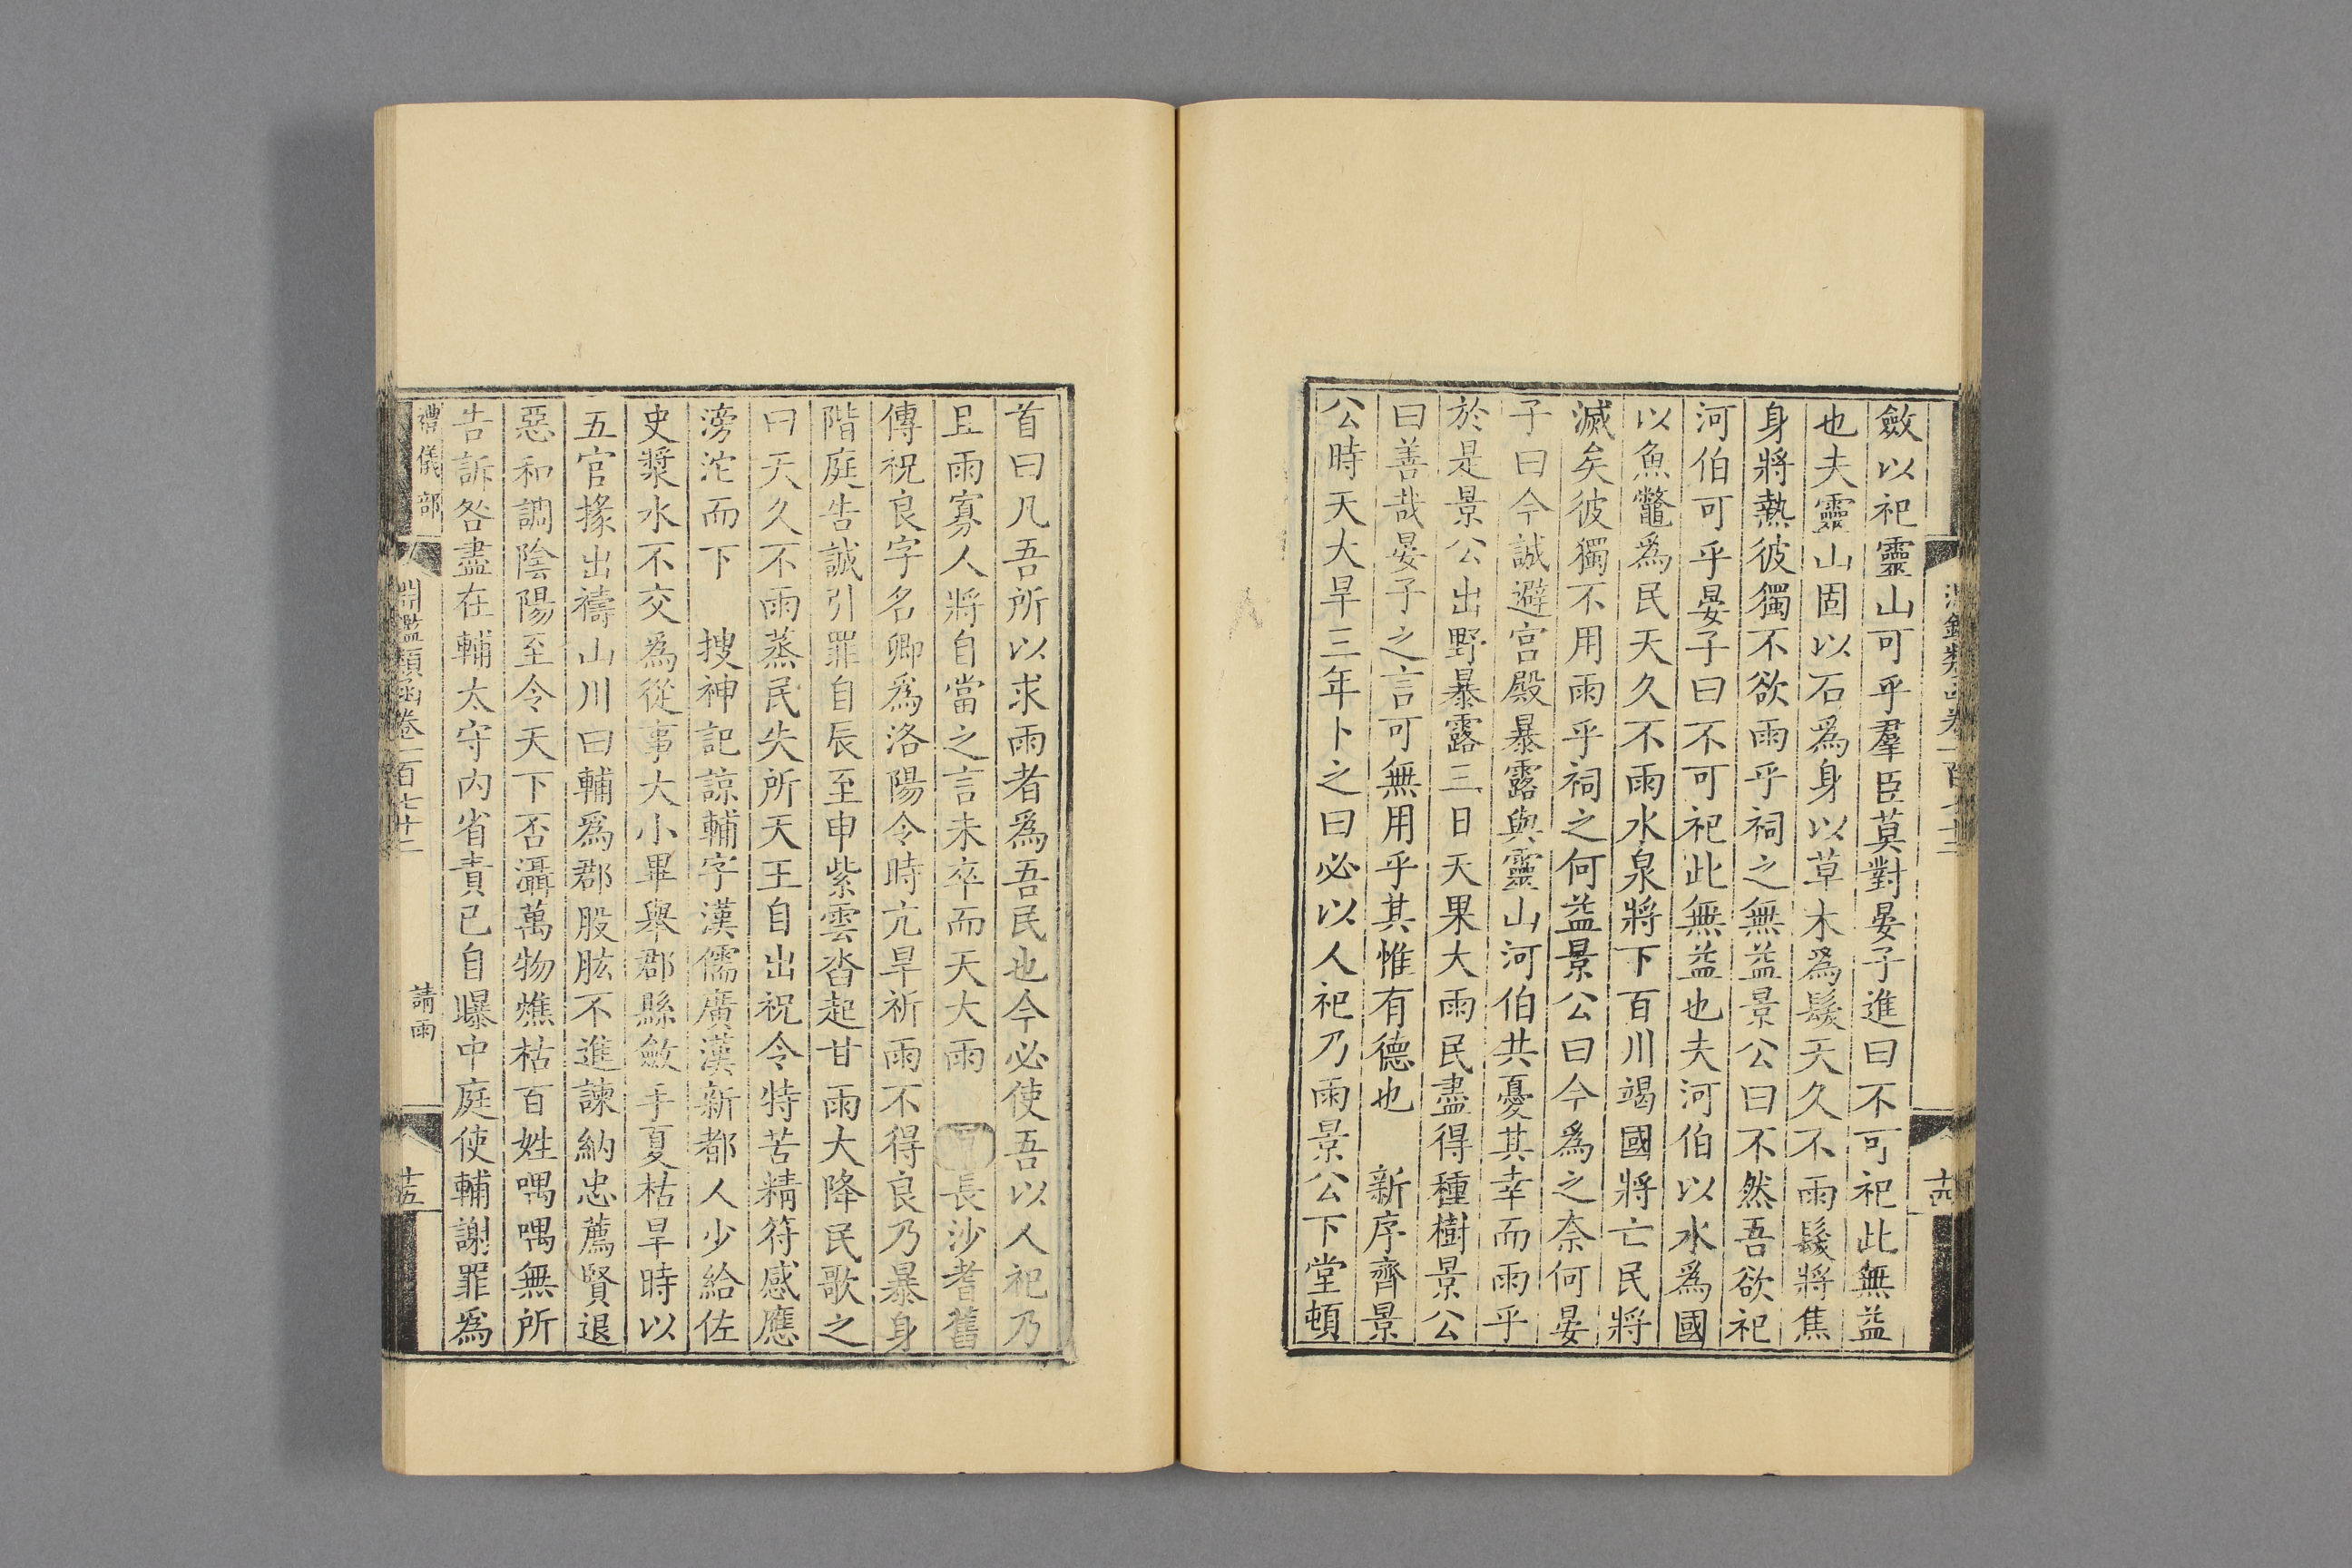 斂以祀靈山可乎羣臣莫對晏子進曰不可祀此無益
也夫靈山固以石爲身以草木爲髮天久不雨髮將焦
身將熱彼獨不欲雨乎祠之無益景公曰不然吾欲祀
河伯可乎晏子曰不可祀此無益也夫河伯以水爲國
以魚鼈爲民天久不雨水泉將下百川竭國將亡民將
滅矣彼獨不用雨乎祠之何益景公曰今爲之奈何晏
子曰今誠避宮殿暴露與靈山河伯共憂其幸而雨乎
於是景公出野暴露三日天果大雨民盡得種樹景公
曰善哉晏子之言可無用乎其惟有德也 新序齊景
公時天大旱三年卜之曰必以人祀乃雨景公下堂頓
十四
首曰凡吾所以求雨者爲吾民也今必使吾以人祀乃
且雨寡人將自當之言未卒而天大雨 長沙耆舊
傳祝良字名卿爲洛陽令時亢旱祈雨不得良乃暴身
階庭告誠引罪自辰至申紫雲沓起甘雨大降民歌之
曰天久不雨蒸民失所天王自出祝令特苦精符感應
滂沱而下 搜神記諒輔字漢儒廣漢新都人少給佐
史漿水不交爲從事大小畢舉郡縣斂手夏枯旱時以
五官掾出禱山川曰輔爲郡股肱不進諫納忠薦賢退
惡和調陰陽至令天下否灄萬物燋枯百姓喁喁無所
告訴咎盡在輔太守內省責已自曝中庭使輔謝罪爲
禮儀部
淵鑑類函卷一百七十二
請雨
十五